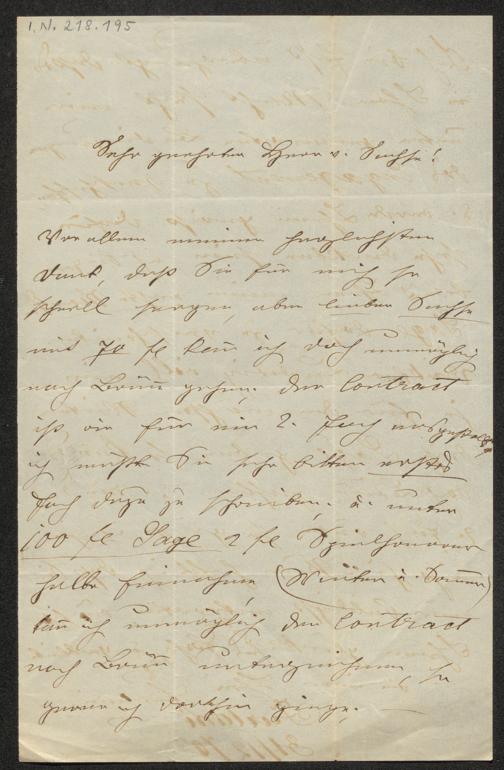 I.N. 218.195
Sehr geehrter Herr v. Sachse!
Vor allem meinen herzlichsten
Dank, daß Sie für mich so
schnell sorgen, aber lieber Sachse
mit 70 fl kann ich doch unmöglich
nach Brünn gehen; der Contract
ist, wie für ein 2. Fach ausgestellt,
ich müßte Sie sehr bitten erstes
Fach dazu zu schreiben, u. unter
100 fl Gage 2 fl Spielhonorar
halbe Einnahme (Winter u. Sommer)
kann ich unmöglich den Contract
nach Brünn unterzeichnen, so
gerne ich dorthin ginge.